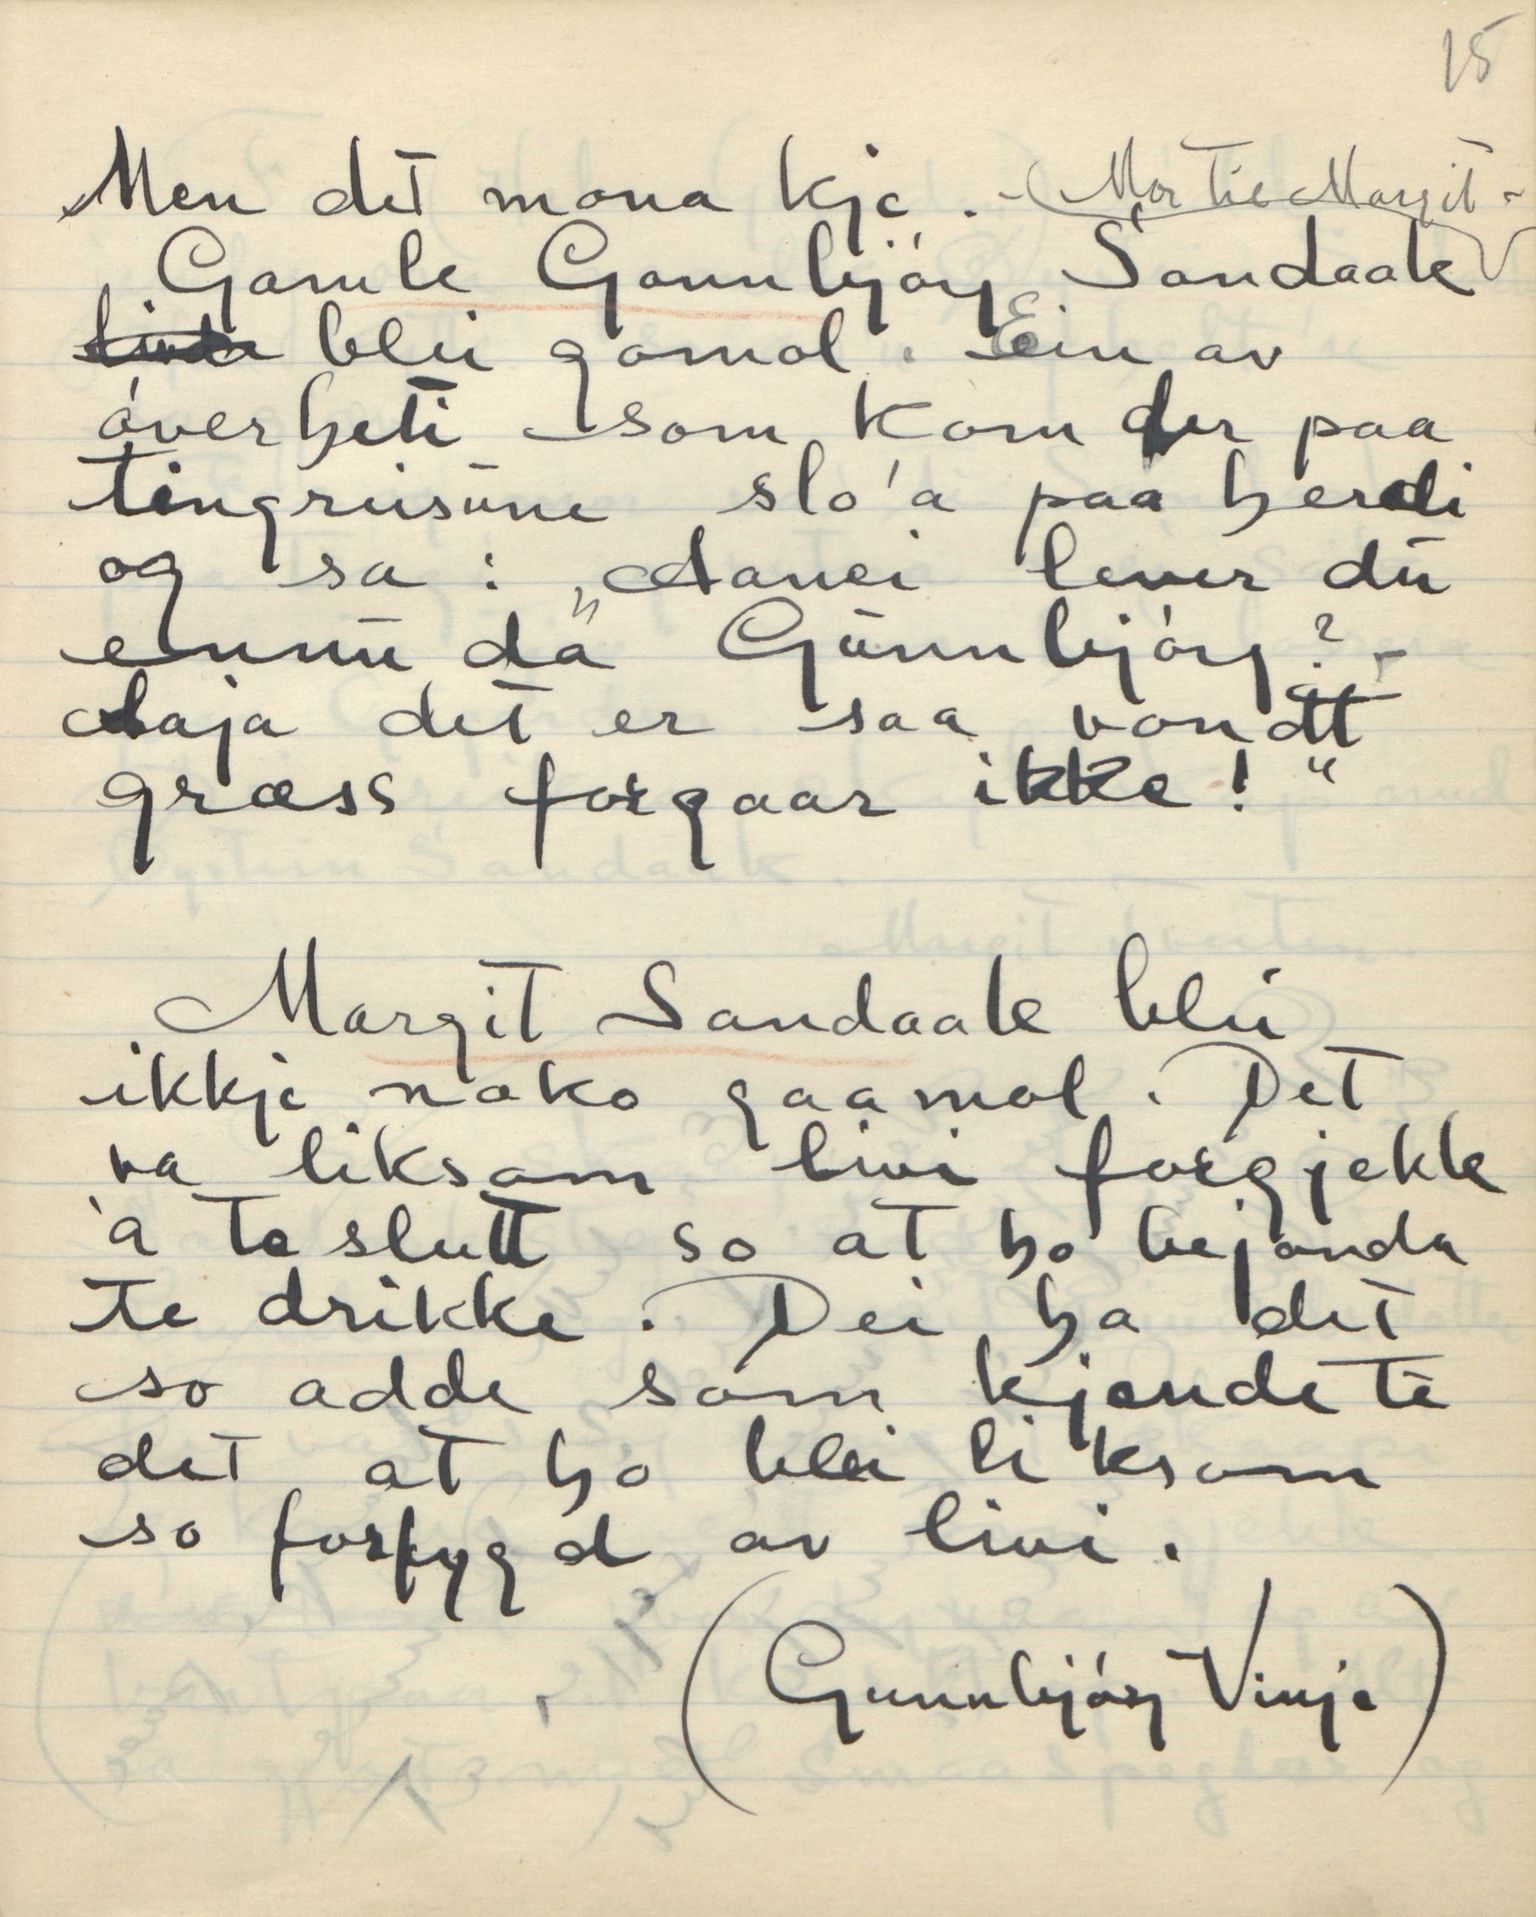 15
Men det mona kje. - (Mor til Margit -
Gamle Gunnbjórg Sandaak
blei gomol. Ein av
óverheti som kom der paa
tingreisune slo 'a paa herdi
og sa: „Aanei lever du
ennu da" Gunnbjórg? -
Aaja det er saa vondt
græss forgaar ikke!"
Margit Sandaak blei
ikkje noko gaamol. Det
va liksom livi forgjekk
'a te slutt so at ho bejonda
te drikke. Dei ha det
so adde som kjende te
det at ho blei liksom
so forfygd av livi.
(Gunnbjórg Vinje)